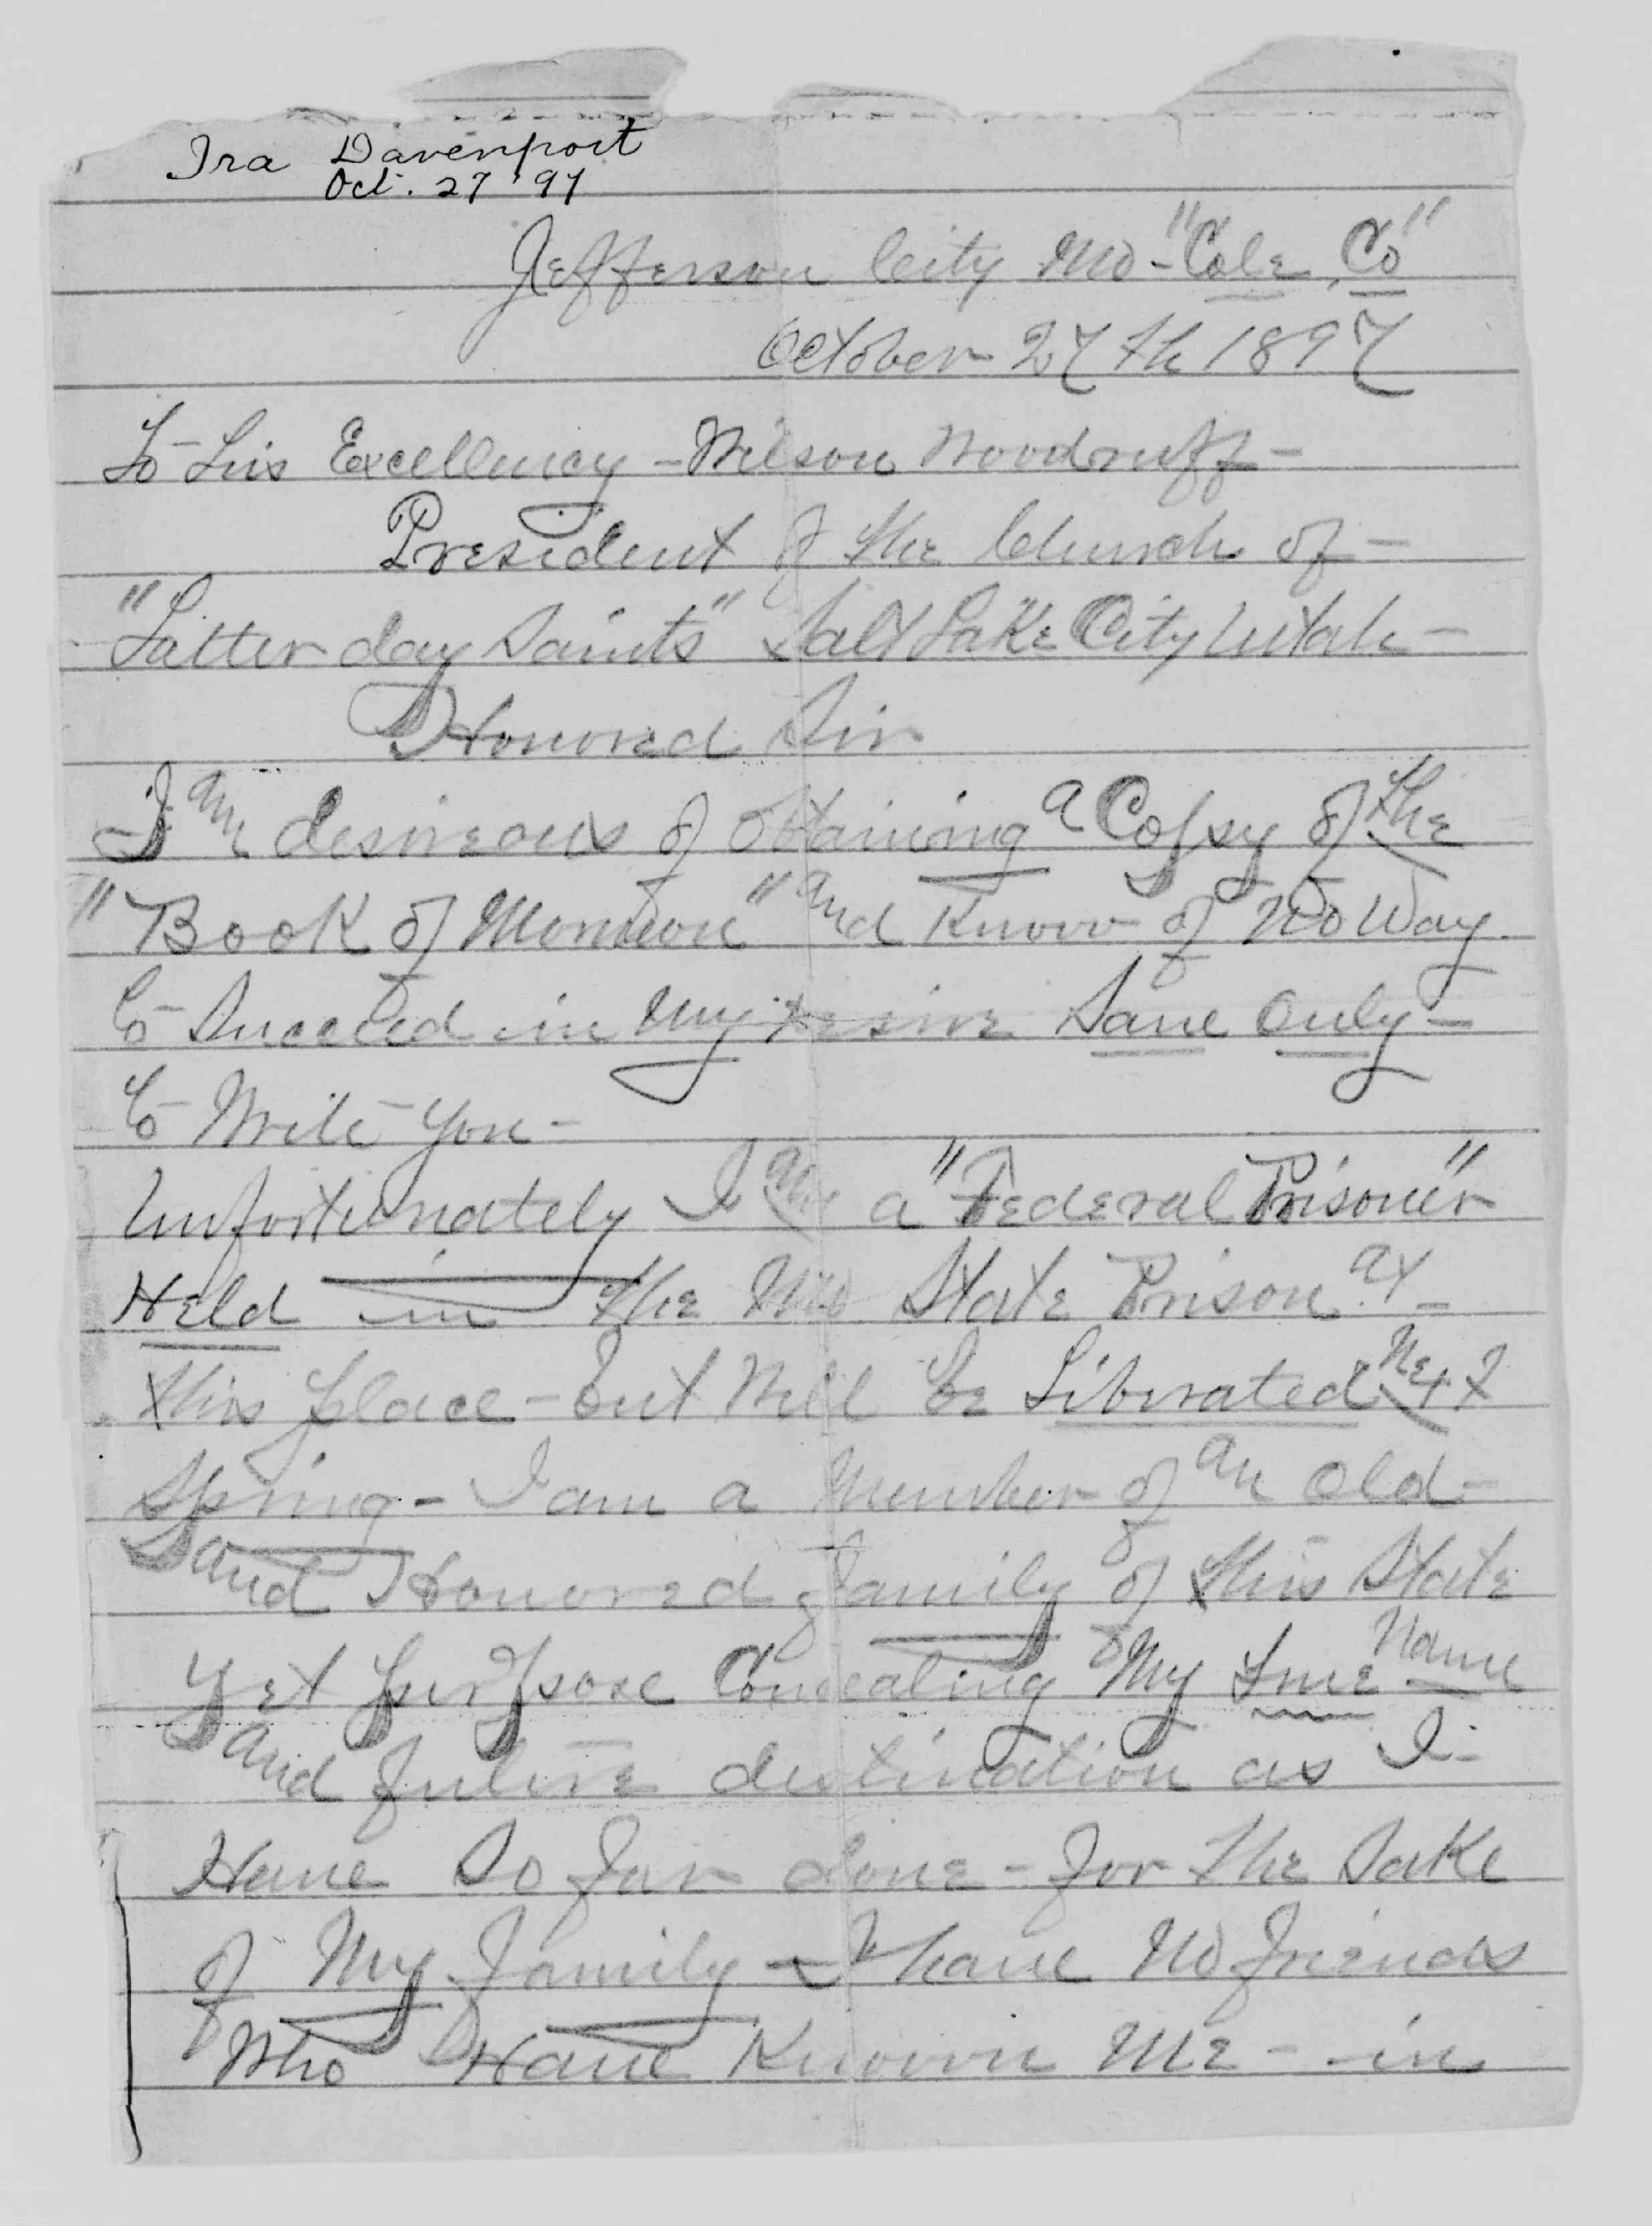 Ira Davenport
Oct. 27 '97
Jefferson City Mo - "Cole, Co"
October 27th 1897
To His Excellency - Wilson Woodruff -
President of the Church of -
"Latter day Saints" Salt Lake City Utah -
Honored Sir
I am desireous of obtaining a Copy of the
"Book of Mormon" and Know of No Way
to Succeed in My desire Save Only -
to Write You -
Unfortunately I am a "Federal Prisoner"
Held in the Mo State Prison at -
this place - but Will be Liberated Next
Spring - I am a Member of an Old -
and Honored family of this State
Yet purpose Concealing My True Name
and future destination as I -
Have So far done - for the Sake
of My family - I have No friends
Who Have Known Me - in